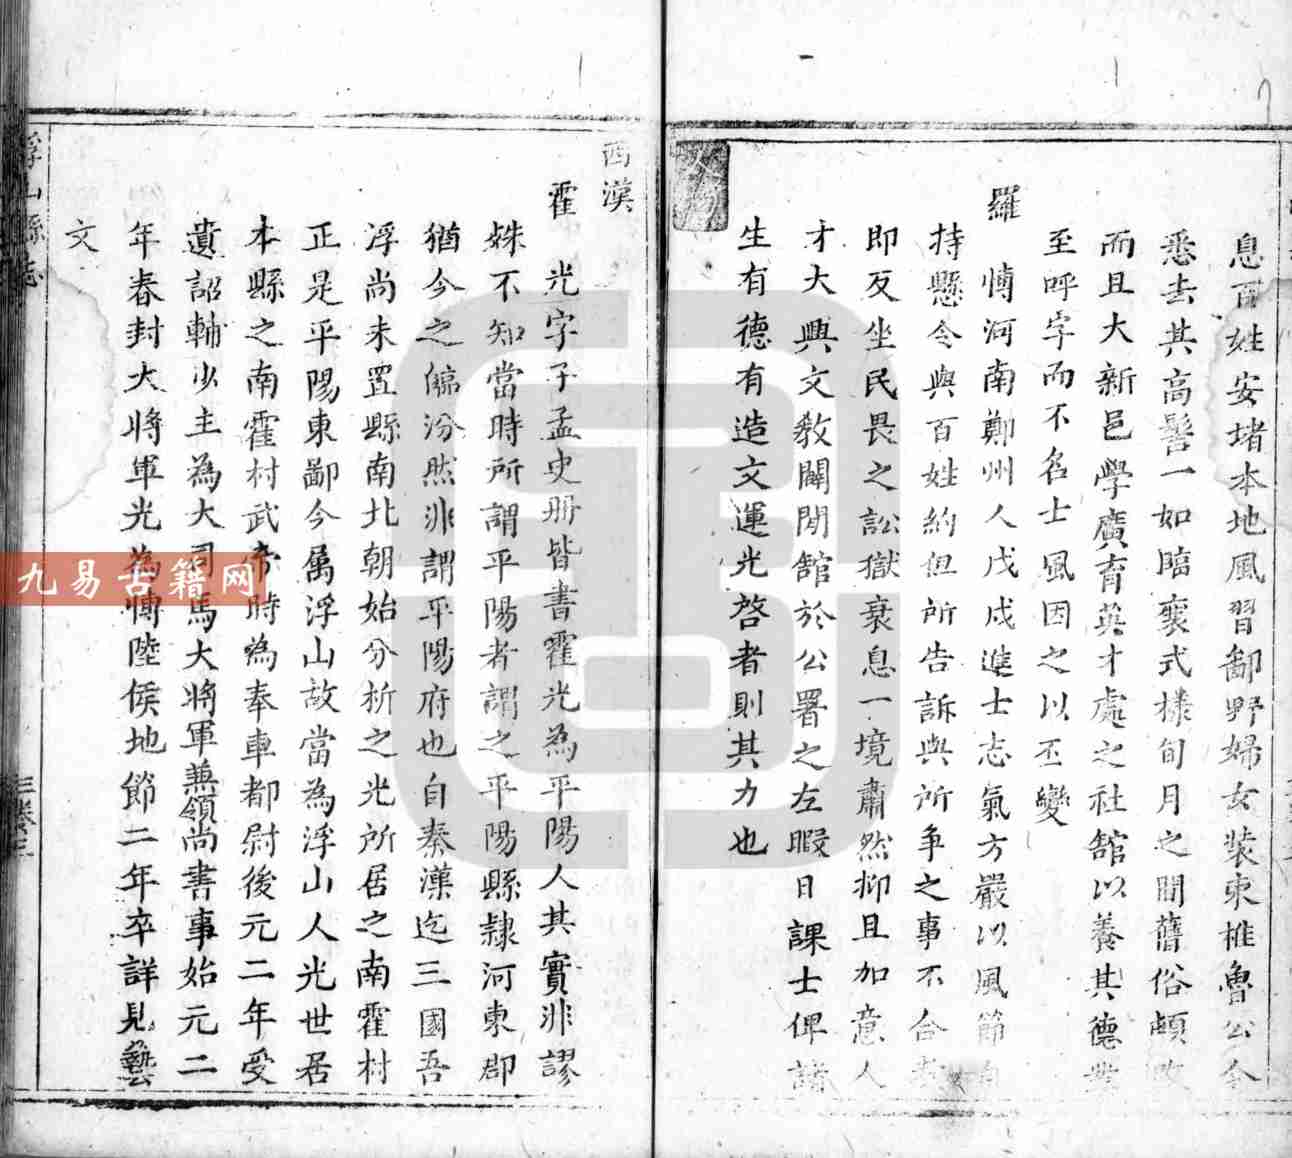 息百姓安堵本地風習鄙野婦女装束椎魯公令
悉去其高髻一如臨襄式樣旬月之間舊俗頓改
而且大新邑學廣育英才處之社舘以養其德業
至呼字而不名士風因之以丕變
羅 愽河南鄭州人戊戌進士志氣方嚴以風節自
持懸令與百姓約但所告訴與所争之事不合
即反坐民畏之訟獄衰息一境肅然抑且加意人
才大興文教闢閒舘於公署之左暇日課士俾諸
生有德有造文運光啓者則其力也
人物
西漢
霍 光字子孟史册皆書霍光為平陽人其實非謬
姝不知當時所謂平陽者謂之平陽縣隷河東郡
猶今之臨汾然非謂平陽府也自秦漢迄三國吾
浮尚未置縣南北朝始分析之光所居之南霍村
正是平陽東鄙今属浮山故當為浮山人光世居
本縣之南霍村武帝時為奉車都尉後元二年受
遺詔輔少主為大司馬大將軍兼領尚書事始元二
年春封大將軍光為愽陸侯地節二年卒詳見藝
文
浮山縣志
九易古籍网